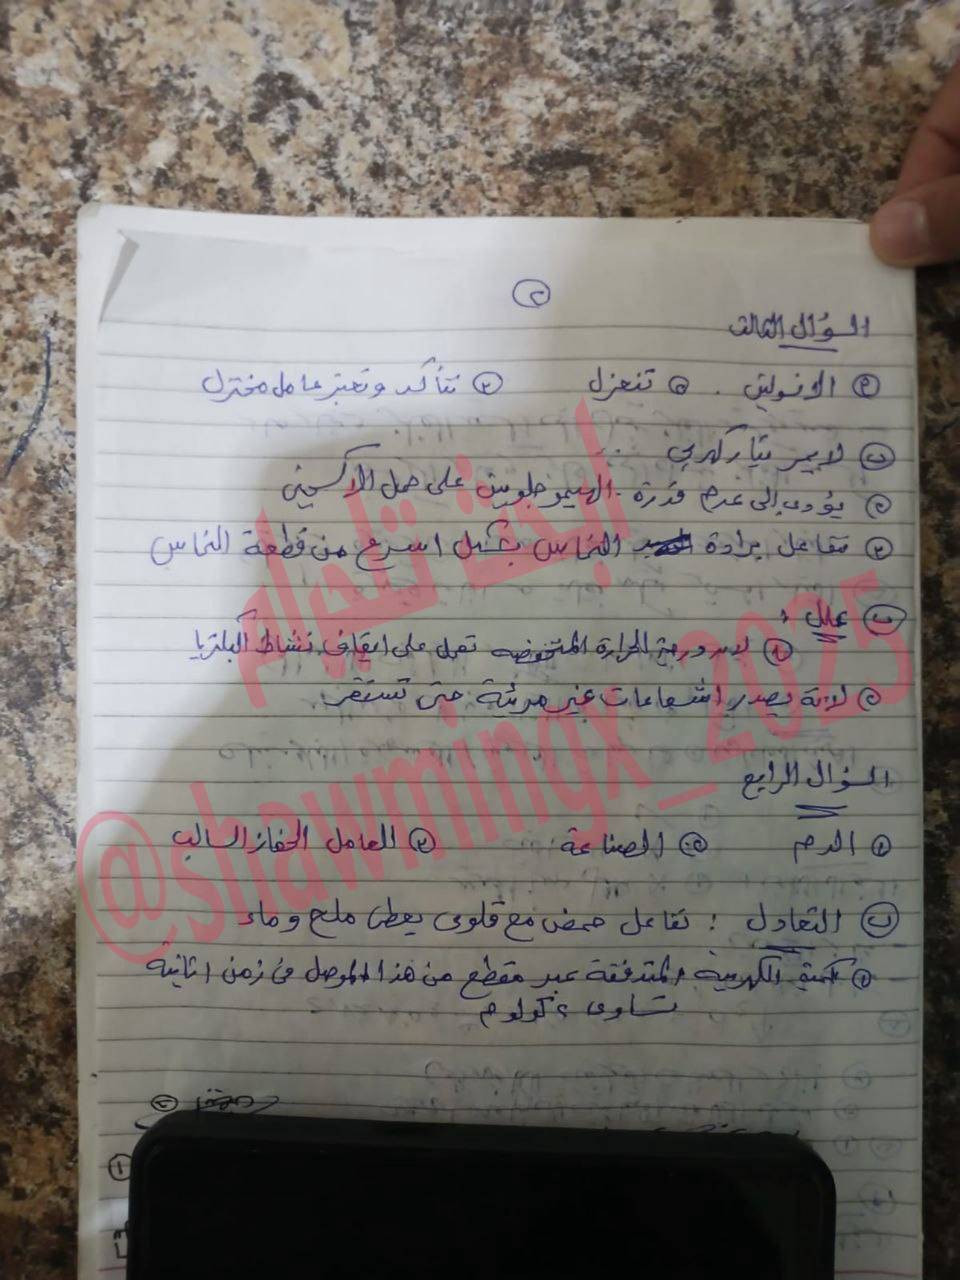 ٢
السؤال الثالث
١ الانسولين . ٢ تنعزل ٣ تتأكد وتعتبر عامل مختزل
ب لا يمر تيار كهربي
٢ يؤدى إلى عدم قدرة الهيموجلوبين على حمل الاكسجين
٣ تتفاعل برادة النحاس بشكل اسرع من قطعة النحاس
علل :
١ لان درجة الحرارة المنخفضه تعمل على ايقاف نشاط البكتريا
٢ لانه يصدر اشعاعات غير مرئية حتى تستقر
السؤال الرابع
١ الدم ٢ الصناعة ٣ العامل الحفاز السالب
ب التعادل : تفاعل حمض مع قلوى يعطى ملح وماء
٢ كمية الكهربية المتدفقة عبر مقطع من هذا الموصل فى زمن ١ ثانية
تساوى ٢ كولوم
ابحث تليجرام
@shawmingx_2025